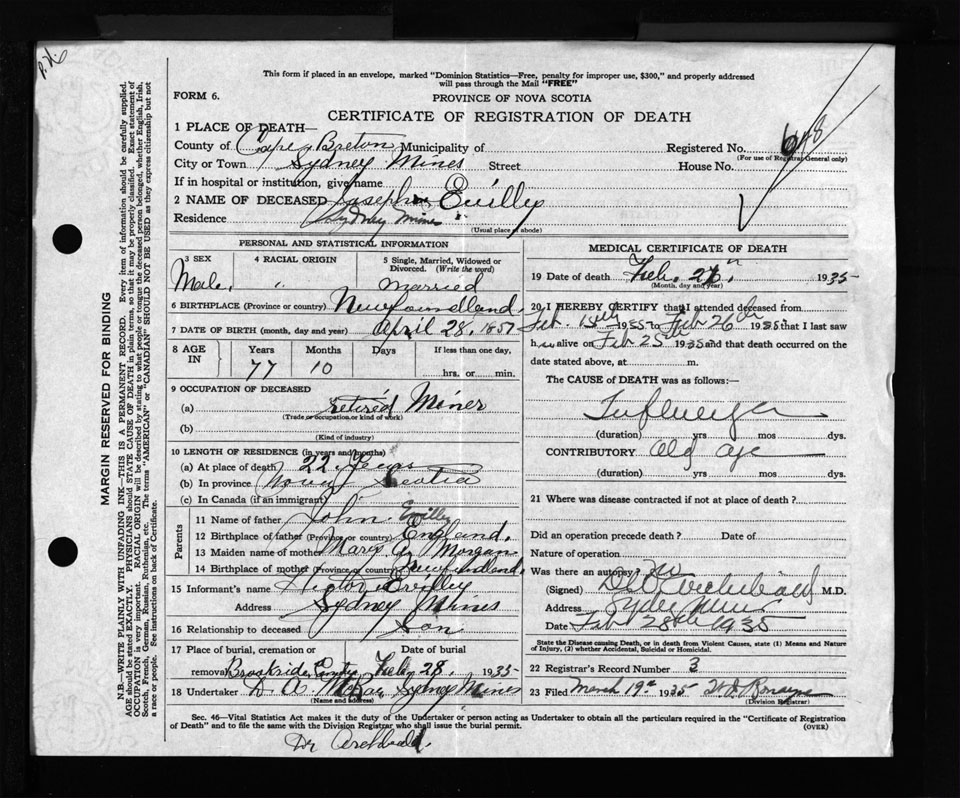 This form if placed in an envelope, marked "Dominion Statistics—Free, penalty for improper use, $300," and properly addressed
will pass through the Mail "FREE"
FORM 6.
PROVINCE OF NOVA SCOTIA
CERTIFICATE OF REGISTRATION OF DEATH
1 PLACE OF DEATH—
County of Cape Breton Municipality of
Registered No.
(For use of Registrar General only)
City or Town Sydney Mines Street House No.
If in hospital or institution, give name
2 NAME OF DECEASED Joseph Evilly
Residence Sydney Mines
(Usual place of abode)
PERSONAL AND STATISTICAL INFORMATION
3 SEX
Male
4 RACIAL ORIGIN
"
5 Single, Married, Widowed or
Divorced. (Write the word)
Married
6 BIRTHPLACE (Province or country) Newfoundland
7 DATE OF BIRTH (month, day and year) April 28, 1857
8 AGE IN
Years Months Days If less than one day,
77 10 hrs. or min.
9 OCCUPATION OF DECEASED
(a) retired Miner
(Trade or occupation or kind of work)
(b)
(Kind of industry)
10 LENGTH OF RESIDENCE (in years and months)
(a) At place of death 22 Years
(b) In province Nova Scotia
(c) In Canada (if an immigrant)
Parents
11 Name of father John Evilly
12 Birthplace of father (Province or country) England.
13 Maiden name of mother Mary Morgan
14 Birthplace of mother (Province or country) Newfoundland.
15 Informant's name Evilly
Address Sydney Mines
16 Relationship to deceased Son
17 Place of burial, cremation or removal
Date of burial
Feb. 28, 1935
18 Undertaker Sydney Mines
(Name and address)
MEDICAL CERTIFICATE OF DEATH
19 Date of death Feb. 26, 1935
(Month, day and year)
20 I HEREBY CERTIFY that I attended deceased from
Feb. 15th 1935 to Feb 26th 1935 that I last saw
him alive on Feb 25th 1935 and that death occurred on the
date stated above, at m.
The CAUSE of DEATH was as follows:—
Influenza
(duration) yrs mos dys.
CONTRIBUTORY Old age
(duration) yrs mos dys.
21 Where was disease contracted if not at place of death?
Did an operation precede death? Date of
Nature of operation
Was there an autopsy? no
(Signed) Archibald M.D.
Address Sydney Mines
Date Feb 28th 1935
State the Disease causing Death, or in death from Violent Causes, state (1) Means and Nature
of Injury, (2) whether Accidental, Suicidal or Homicidal.
22 Registrar's Record Number 3
23 Filed March 19th 1935
(Division Registrar)
Sec. 46—Vital Statistics Act makes it the duty of the Undertaker or person acting as Undertaker to obtain all the particulars required in the "Certificate of Registration
of Death" and to file the same with the Division Registrar who shall issue the burial permit.
(OVER)
Dr Archibald.
MARGIN RESERVED FOR BINDING
N.B.—WRITE PLAINLY WITH UNFADING INK—THIS IS A PERMANENT RECORD. Every item of information should be carefully supplied.
AGE should be stated EXACTLY. PHYSICIANS should STATE CAUSE OF DEATH in plain terms, so that it may be properly classified. Exact statement of
OCCUPATION is very important. RACIAL ORIGIN will be described by stating to what people or tongue the deceased person belonged, whether English, Irish,
Scotch, French, German, Russian, Ruthenian, etc. The terms "AMERICAN" or "CANADIAN" SHOULD NOT BE USED as they express citizenship but not
a race or people. See instructions on back of Certificate.